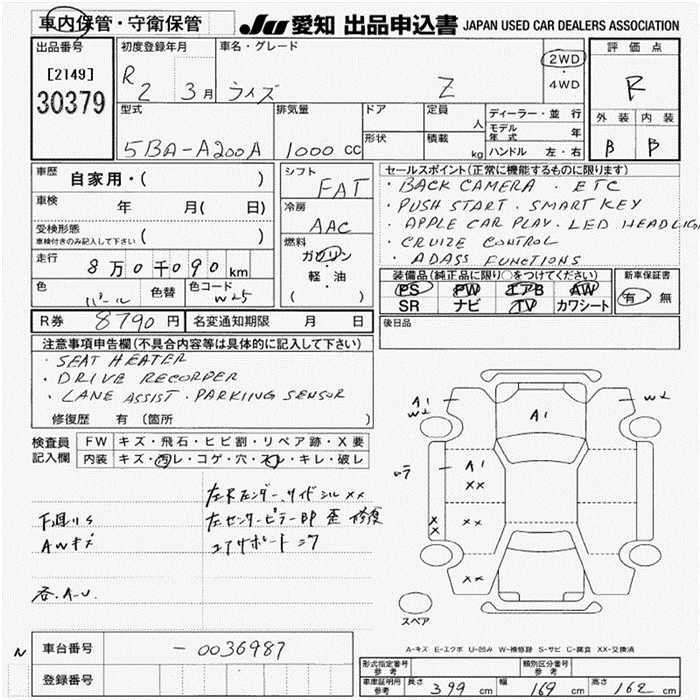 車内保管・守衛保管 JU 愛知 出品申込書 JAPAN USED CAR DEALERS ASSOCIATION
出品番号 初度登録年月 車名・グレード 2WD ・ 4WD 評価点
[2149] R 2 3月 ライズ Z R
30379 型式 排気量 ドア 定員 人 ディーラー・並行 外装 内装
5BA-A200A 1000 CC 形状 積載 kg モデル年式 年 B B
ハンドル 左・右
車歴 自家用・( ) シフト FAT セールスポイント(正常に機能するものに限ります)
車検 年 月( 日) 冷房 AAC ・BACK CAMERA ・ETC
受検形態 ( ) ・PUSH START ・SMART KEY
車検付きのみ記入して下さい 燃料 ・APPLE CAR PLAY ・LED HEADLIG
走行 8万0千090km ガソリン ・CRUIZE CONTROL
色 パール 色替 色コード W25 軽・油 ( ) ・ADASS FUNCTIONS
装備品(純正品に限り○をつけてください) 新車保証書
PS PW エアB AW 有・無
SR ナビ TV カワシート
R券 8790円 名変通知期限 月 日 後日品
注意事項申告欄(不具合内容等は具体的に記入して下さい)
・SEAT HEATER
・DRIVE RECORDER
・LANE ASSIST ・PARKIING SENSOR
修復歴 有 (箇所 )
検査員記入欄 FW キズ・飛石・ヒビ割・リペア跡・X要
内装 キズ・汚レ・コゲ・穴・スレ・キレ・破レ
A1 W2 A1 W2
A1 XX
XX XX
XX
下回りS
AWキズ 左センターピラー部 歪 修復
各.A.U.
スペア
A-キズ E-エクボ U-凹み W-補修跡 S-サビ C-腐食 XX-交換済
車台番号 -0036987
登録番号
型式指定番号 参考 類別区分番号 参考
車庫証明用 参考 長さ 399 cm 幅 169 cm 高さ 162 cm